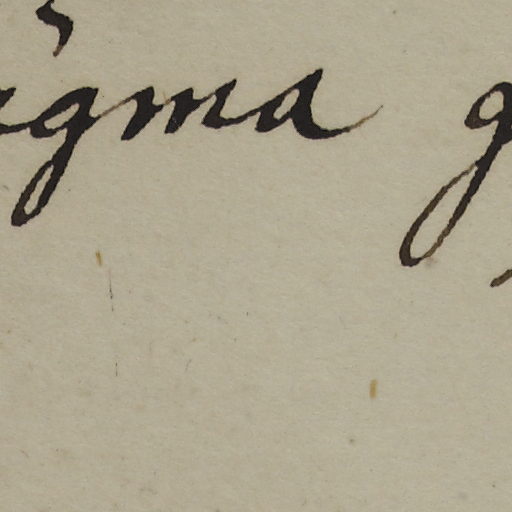 igma g